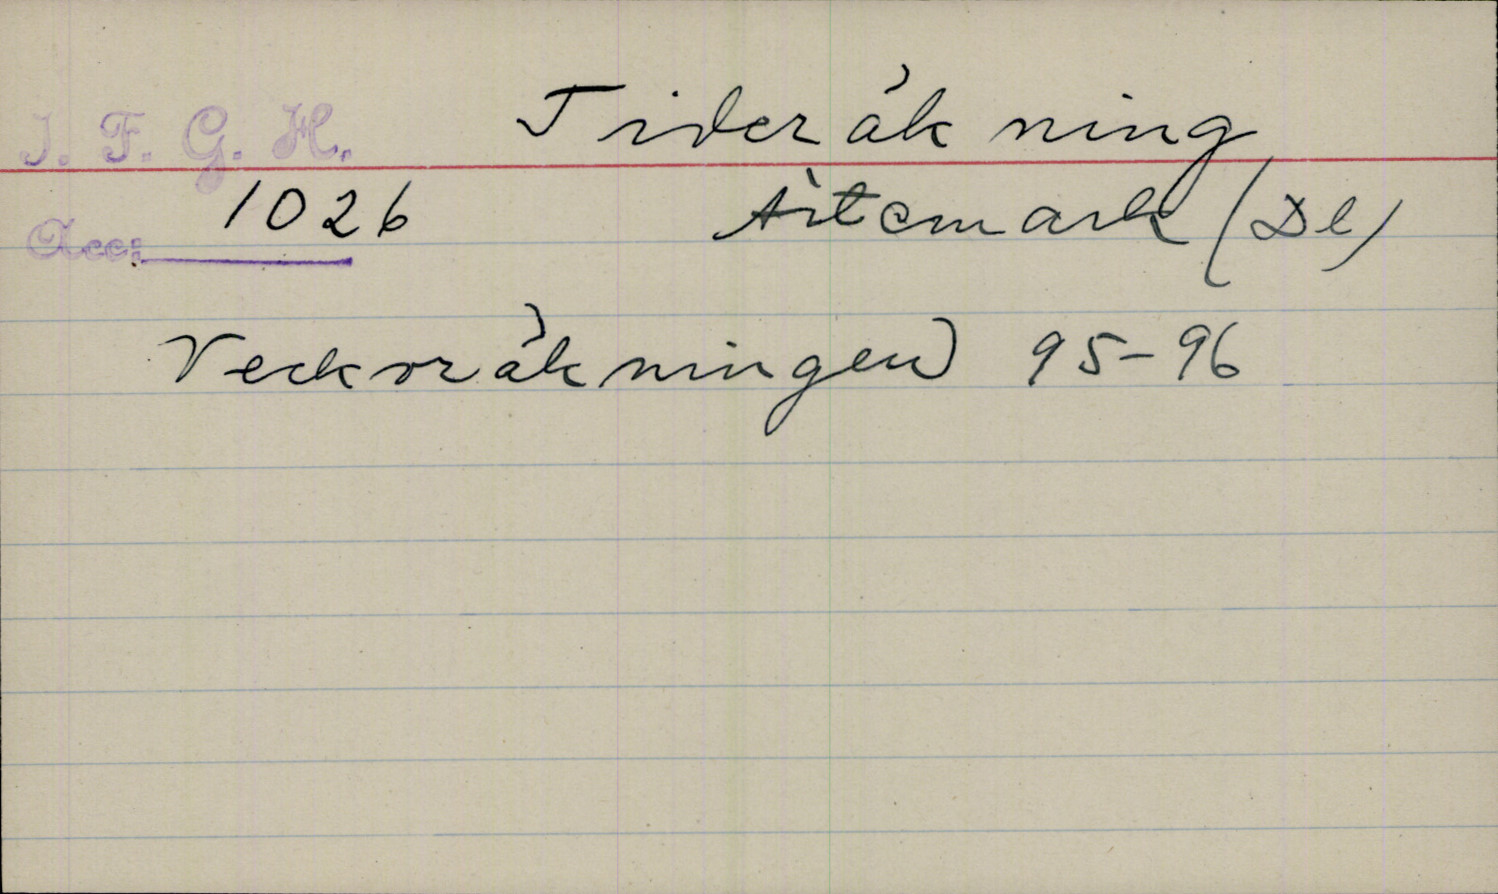 I. F. G. H. Tideräkning
Acc: 1026 Ärtemark (Dl)
Veckoräkningen 95-96